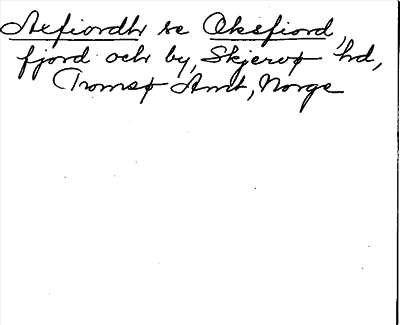 Axfiordh se Oksfiord,
fjord och by, Skjervø hd,
Tromsø Amt, Norge